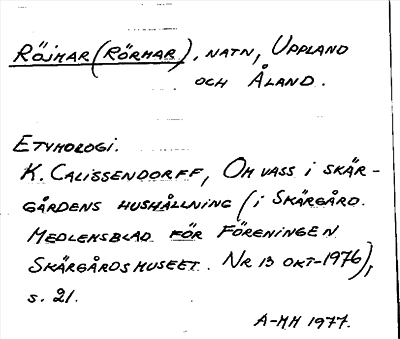 RÖJMAR (RÖRMAR), NATN, UPPLAND
OCH ÅLAND.
ETYMOLOGI.
K. CALISSENDORFF, OM VASS I SKÄR-
GÅRDENS HUSHÅLLNING (i SKÄRGÅRD.
MEDLEMSBLAD FÖR FÖRENINGEN
SKÄRGÅRDSMUSEET. NR 13 OKT-1976),
s. 21.
A-MH 1977.